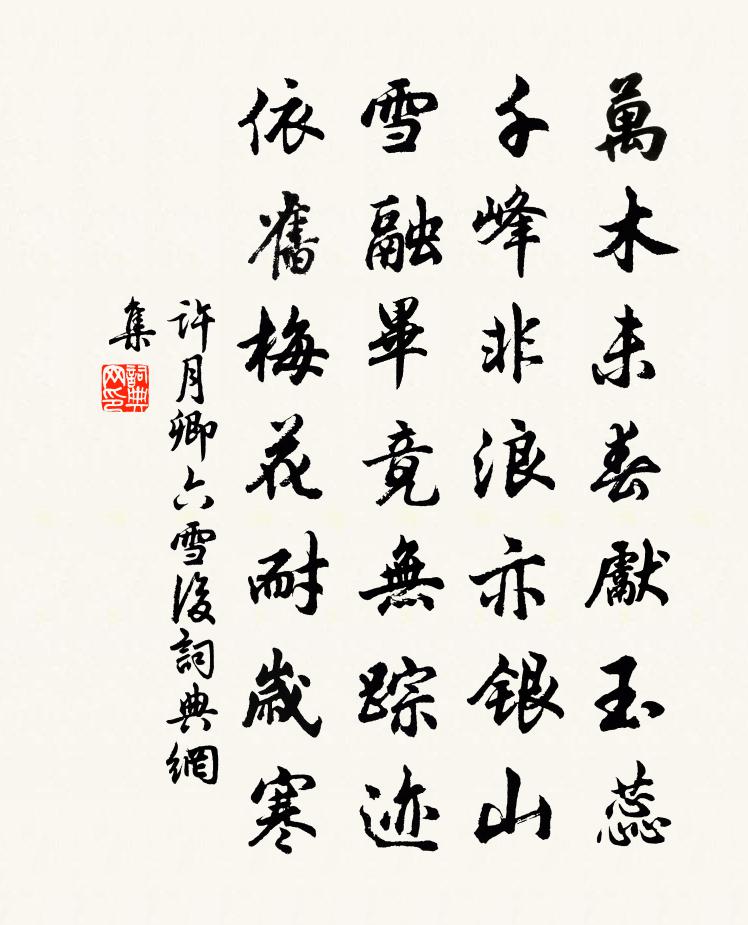 萬木未春獻玉蕊
千峰非浪亦银山
雪融畢竟無踪迹
依舊梅花耐歲寒
許月卿六雪後詞典網
集
詞典
网印